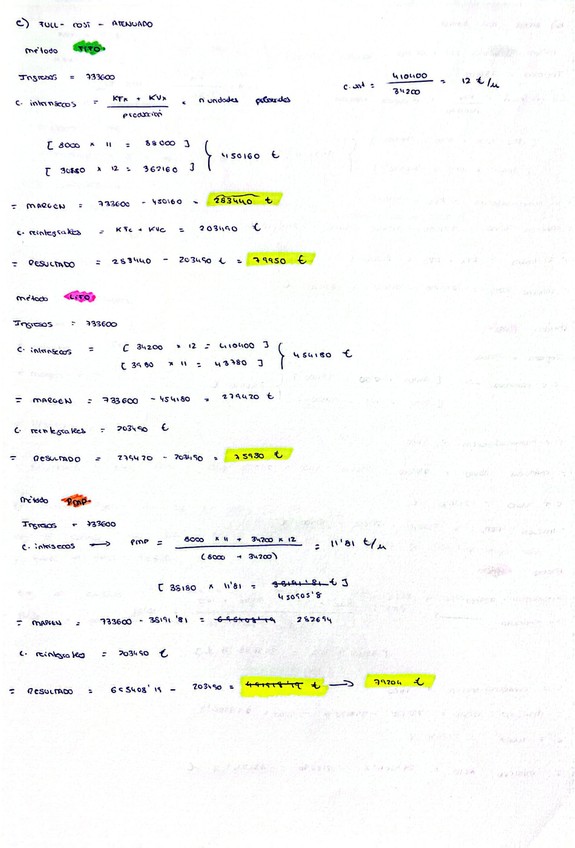 c) FULL - COST - ATENUADO
método FIFO
Ingresos = 733600
c. unit = 410400 / 34200 = 12 €/u
c. intrínsecos = KTx + KVx / producción × nunidades
[ 8000 × 11 = 88000 ]
[ 30180 × 12 = 362160 ] } 450160 €
= MARGEN = 733600 - 450160 = 283440 €
c. reintegrables = KTc + KVc = 203490 €
= RESULTADO = 283440 - 203490 € = 79950 €
método LIFO
Ingresos = 733600
c. intrínsecos = [ 34200 × 12 = 410400 ]
[ 3980 × 11 = 43780 ] } 454180 €
= MARGEN = 733600 - 454180 = 279420 €
c. reintegrables = 203490 €
= RESULTADO = 279420 - 203490 = 75930 €
método PMP
Ingresos = 733600
c. intrísecos → PMP = 8000 × 11 + 34200 × 12 / (8000 + 34200) = 11'81 €/u
[ 38180 × 11'81 = 38191'81 € ]
450905'8
= MARGEN = 733600 - 38191'81 = 695408'19 282694
c. reintegrables = 203490 €
= RESULTADO = 695408'19 - 203490 = 491918'19 € → 79204 €